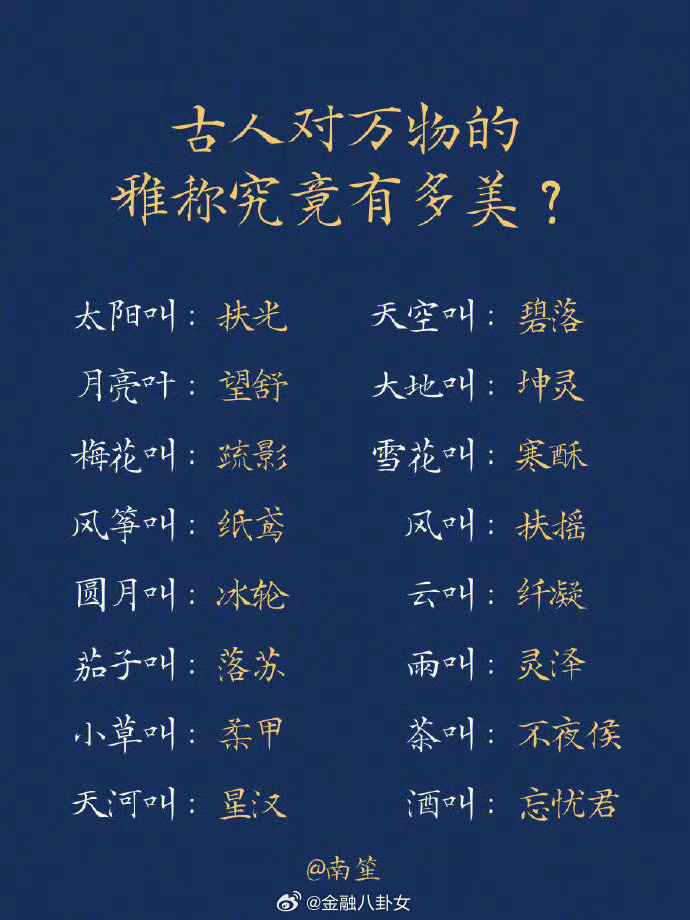 古人对万物的
雅称究竟有多美？
太阳叫：扶光 天空叫：碧落
月亮叶：望舒 大地叫：坤灵
梅花叫：疏影 雪花叫：寒酥
风筝叫：纸鸢 风叫：扶摇
圆月叫：冰轮 云叫：纤凝
茄子叫：落苏 雨叫：灵泽
小草叫：柔甲 茶叫：不夜侯
天河叫：星汉 酒叫：忘忧君
@南笙
@金融八卦女